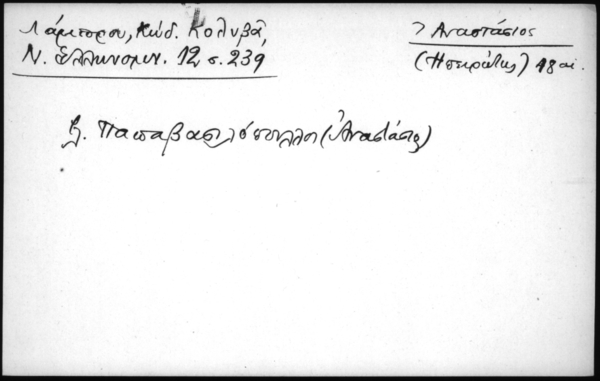 Λάμπρου, Κώδ. Κολυβᾶ,
Ν. Ἑλληνομν. 12 σ. 239
Ἀναστάσιος
(Ἠπειρώτης) 18 αἰ.
βλ. Παπαβασιλόπουλλοι (Ἀναστάσιος)